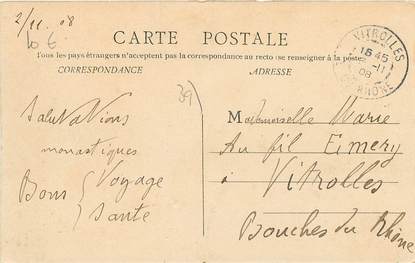 2/11 . 08
10 €
CARTE POSTALE
Tous les pays étrangers n'acceptent pas la correspondance au recto (se renseigner à la poste)
CORRESPONDANCE
ADRESSE
VITROLLES
16 45
-11
08
RHÔNE
39
Salutations
monastiques
Bons { Voyage
Santé
Mademoiselle Marie
Au fil Eimery
à Vitrolles
Bouches du Rhône